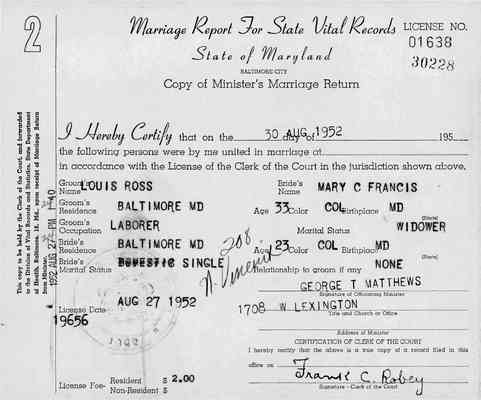 2
Marriage Report For State Vital Records
LICENSE NO.
01638
30228
State of Maryland
BALTIMORE CITY
Copy of Minister's Marriage Return
This copy to be held by the Clerk of the Court, and forwarded
to the Division of Vital Records and Statistics, State Department
of Health, Baltimore, 18, Md., upon receipt of Marriage Return
from Minister.
1952 AUG 27 PM 1 40
I Hereby Certify that on the 30 day of AUG. 1952 195
the following persons were by me united in marriage at
in accordance with the License of the Clerk of the Court in the jurisdiction shown above.
Groom's Name LOUIS ROSS Bride's Name MARY C FRANCIS
Groom's Residence BALTIMORE MD Age 33 Color COL Birthplace MD
(State)
Groom's Occupation LABORER Marital Status WIDOWER
Bride's Residence BALTIMORE MD Age 23 Color COL Birthplace MD
(State)
Bride's Marital Status DOMESTIC SINGLE Relationship to groom if any NONE
208 N.
GEORGE T MATTHEWS
Signature of Officiating Minister
AUG 27 1952
License Date
1708 W LEXINGTON
Title and Church or Office
19656
Address of Minister
CERTIFICATION OF CLERK OF THE COURT
I hereby certify that the above is a true copy of a record filed in this
office on
Frank C. Robey
Signature - Clerk of the Court
License Fee- Resident $ 2.00
Non-Resident $